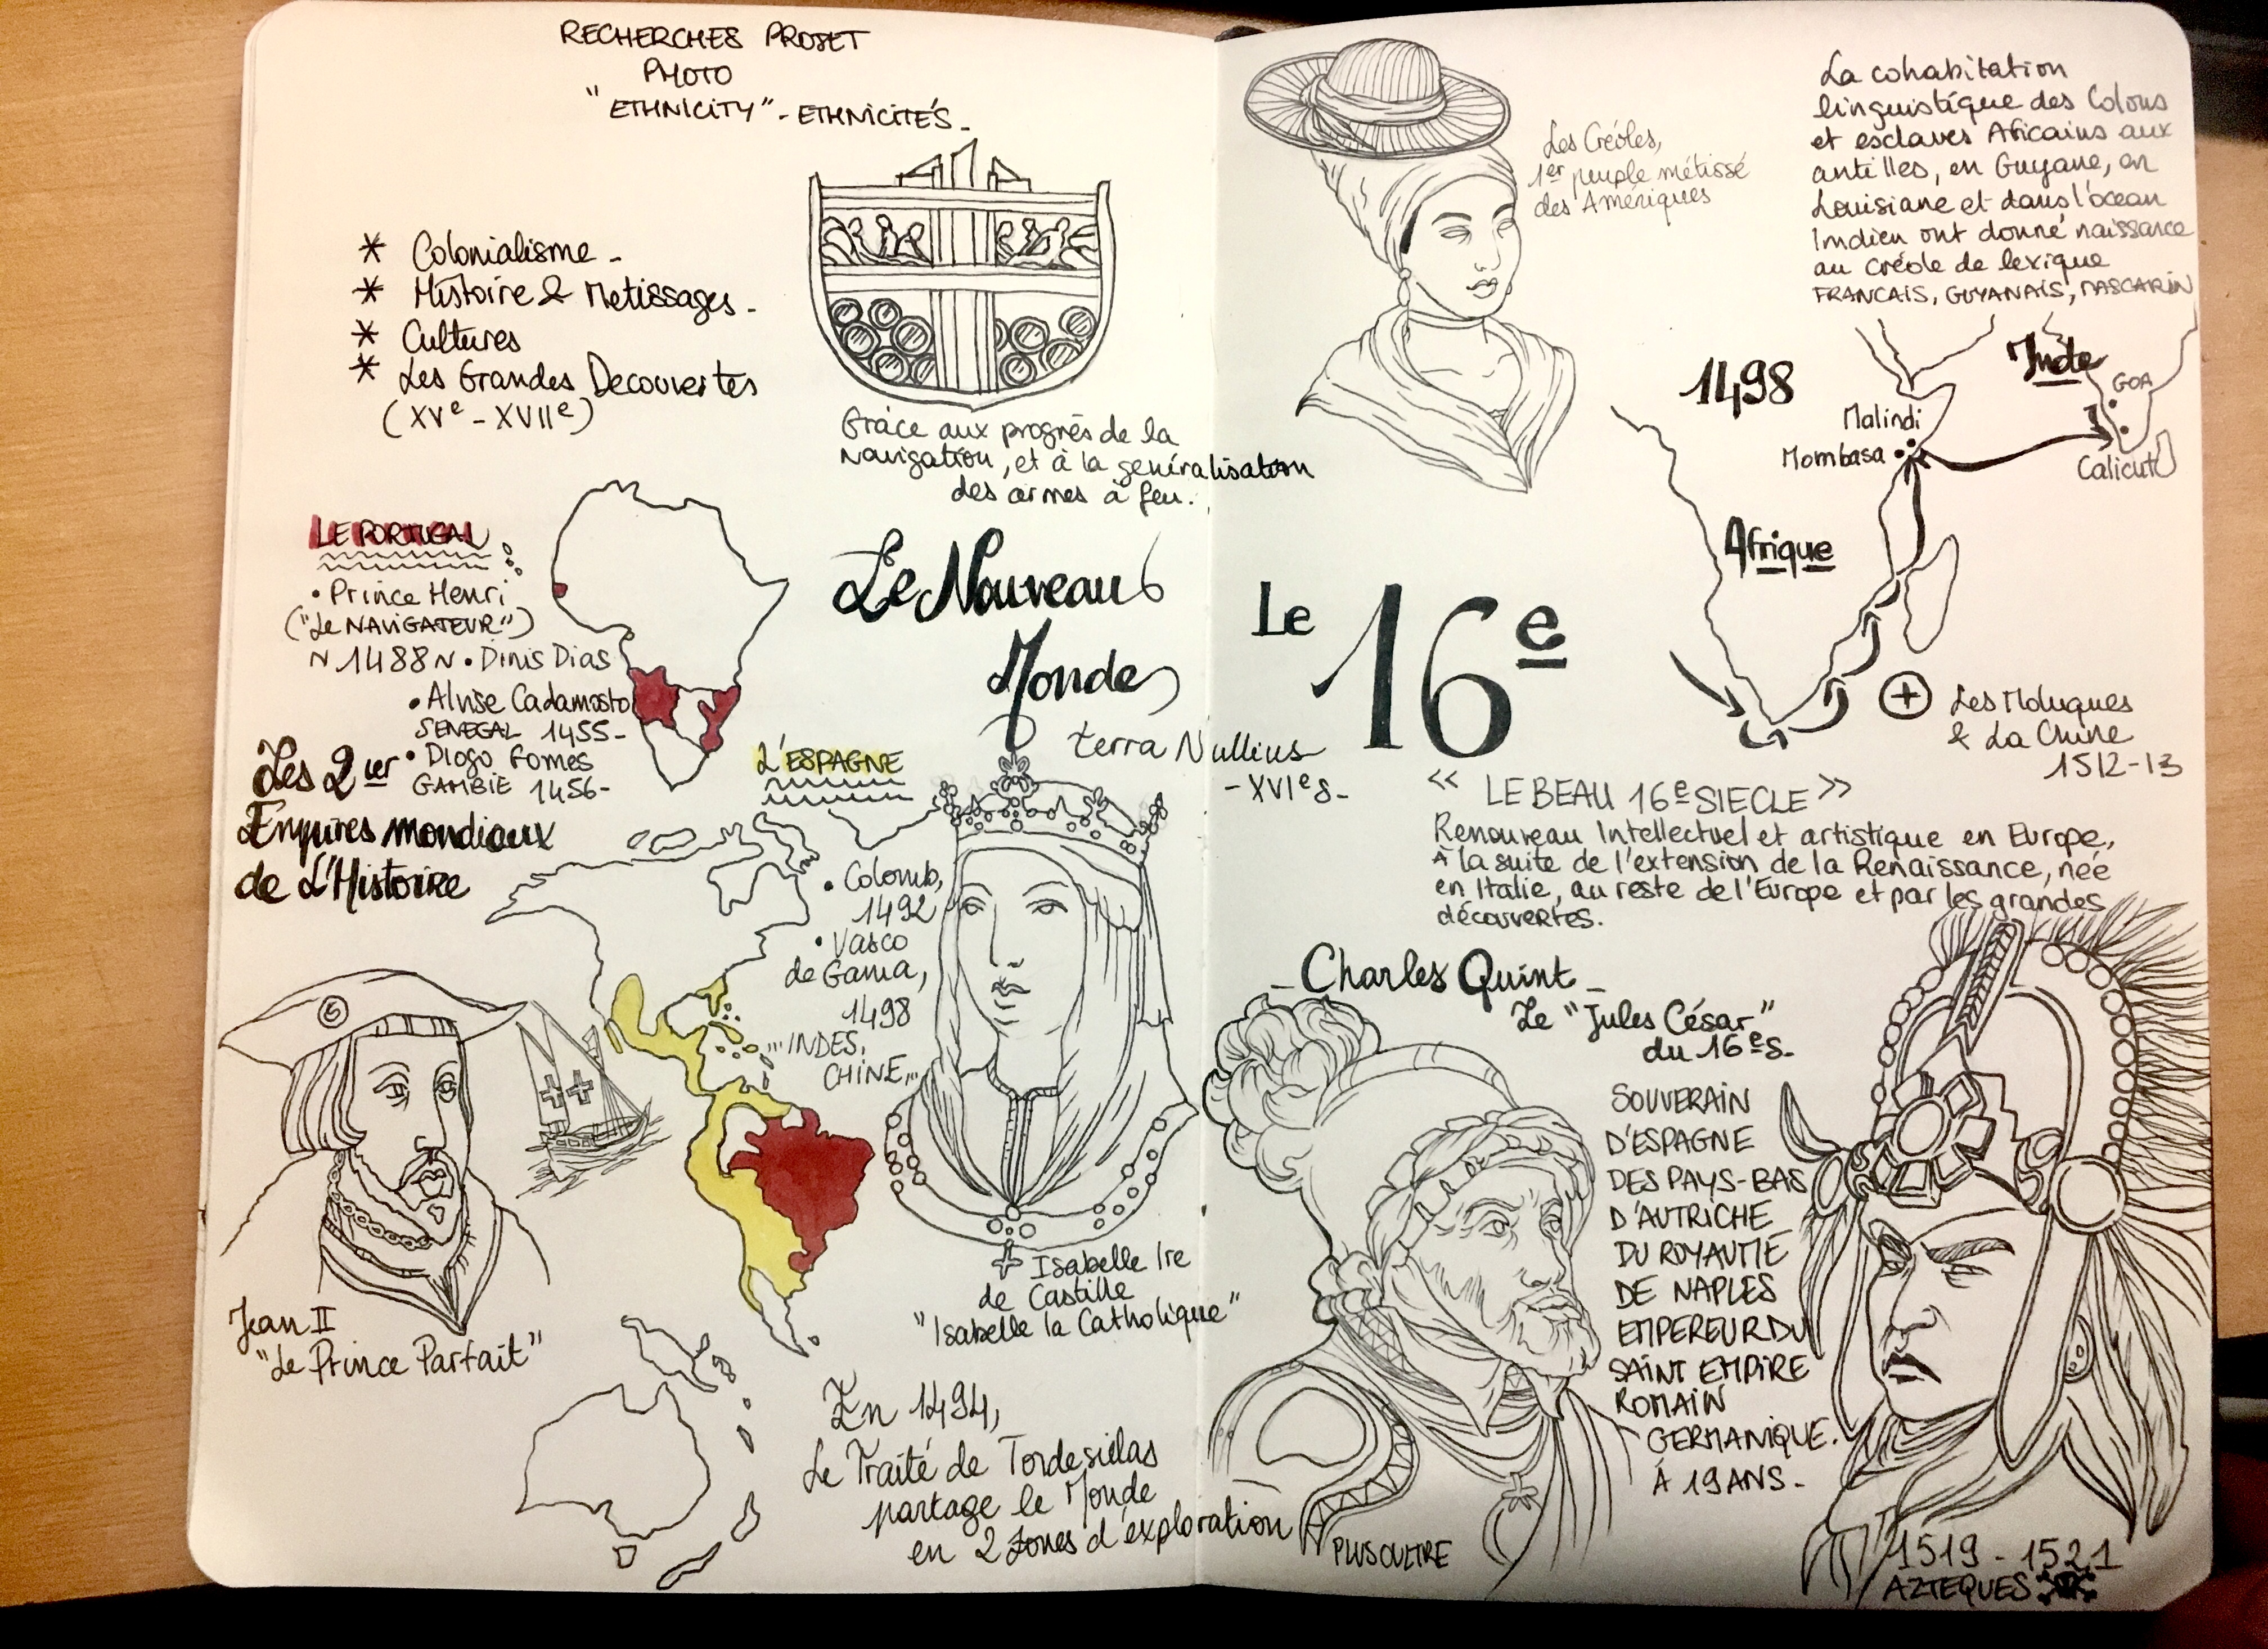 RECHERCHES PROJET
PHOTO
"ETHNICITY" - ETHNICITÉS -
* Colonialisme -
* Histoire & Metissages -
* Cultures
* Les Grandes Decouvertes
(XVe - XVIIe)
Grâce aux progrès de la
navigation, et à la généralisation
des armes à feu.
LE PORTUGAL
• Prince Henri
("Le NAVIGATEUR")
~ 1488 ~ • Dinis Dias
• Alvise Cadamosto
SENEGAL 1455 -
• Diogo Gomes
GAMBIE 1456 -
Les 2 ier
Empires mondiaux
de L'Histoire
Le Nouveau
Monde
terra Nullius
- XVIe s. -
L'ESPAGNE
• Colomb,
1492
• Vasco
de Gama,
1498
... INDES,
CHINE...
Jean II
"Le Prince Parfait"
Isabelle Ire
de Castille
"Isabelle la Catholique"
En 1494,
Le Traité de Tordesillas
partage le Monde
en 2 zones d'exploration
Les Créoles,
1er peuple métissé
des Amériques
La cohabitation
linguistique des Colons
et esclaves Africains aux
antilles, en Guyane, en
Louisiane et dans l'océan
Indien ont donné naissance
au créole de lexique
FRANCAIS, GUYANAIS, MASCARIN
1498
Inde
GOA
Malindi
Mombasa
Calicut
Afrique
+ Les Moluques
& La Chine
1512-13
Le 16e
<< LE BEAU 16e SIECLE >>
Renouveau Intellectuel et artistique en Europe,
à la suite de l'extension de la Renaissance, née
en Italie, au reste de l'Europe et par les grandes
découvertes.
- Charles Quint -
Le "Jules César"
du 16e s -
SOUVERAIN
D'ESPAGNE
DES PAYS-BAS
D'AUTRICHE
DU ROYAUME
DE NAPLES
EMPEREUR DU
SAINT EMPIRE
ROMAIN
GERMANIQUE.
À 19 ANS -
PLUS OULTRE
1519 - 1521
AZTEQUES